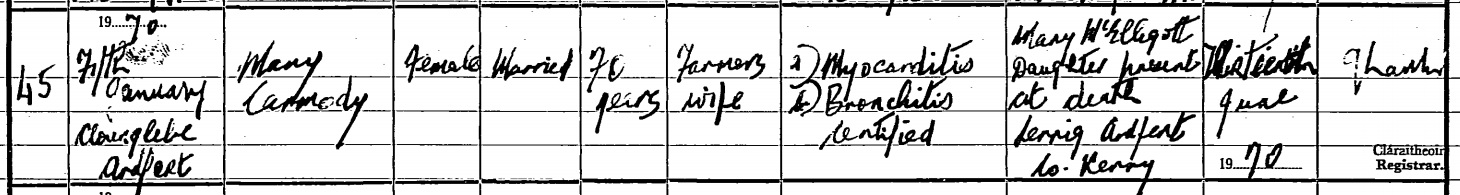 45
1970
Fifth
January
Clounglebe
Ardfert
Mary
Carmody
Female
Married
70
years
Farmers
wife
a) Myocarditis
b) Bronchitis
Certified
Mary McElligott
Daughter present
at death
Lerrig Ardfert
Co. Kerry
Thirteenth
June
1970
Cláraitheoir
Registrar.